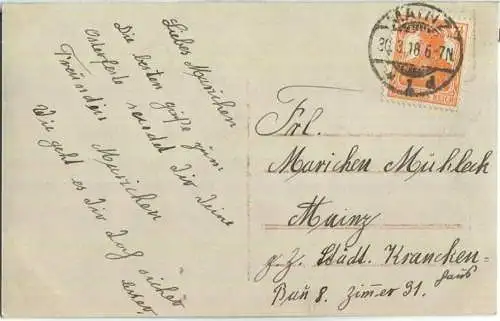 Liebes Marichen
Die besten grüße zum
Osterfeste sendet Dir Deine
Freundin Marichen
Wie geht es Dir doch sicher
besser,
MAINZ
30.3.18.6-7N.
1 d
REICH
Frl.
Marichen Mühleck
Mainz
z. Z. Städt. Krancken-
haus
Bau 8. Zimer 31.